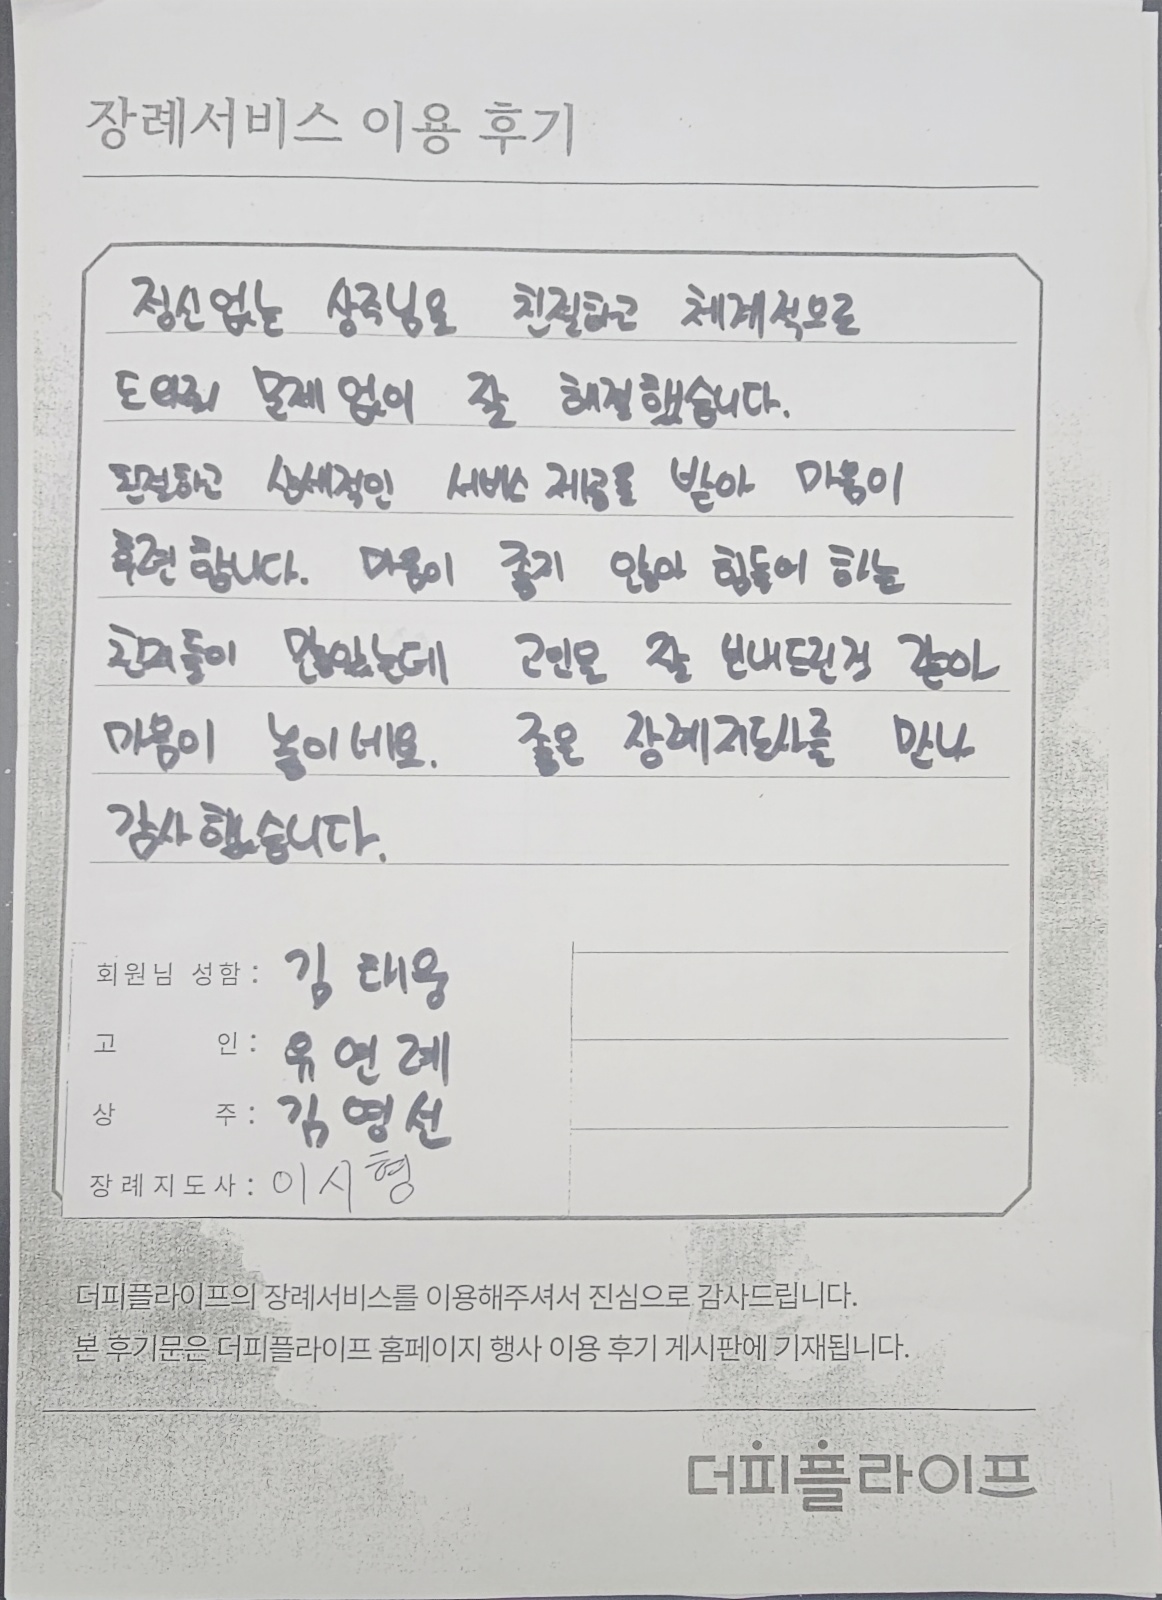 장례서비스 이용 후기
정신없는 상주님을 친절하고 체계적으로
도와줘 문제없이 잘 해결했습니다.
친절하고 섬세적인 서비스 제공을 받아 마음이
후련합니다. 마음이 좋지 않아 힘들어 하는
친지들이 많았는데 고인을 잘 보내드린것 같아
마음이 놓이네요. 좋은 장례지도사를 만나
감사했습니다.
회원님 성함: 김태웅
고 인: 유연례
상 주: 김영선
장례지도사: 이시형
더피플라이프의 장례서비스를 이용해주셔서 진심으로 감사드립니다.
본 후기문은 더피플라이프 홈페이지 행사 이용 후기 게시판에 기재됩니다.
더피플라이프